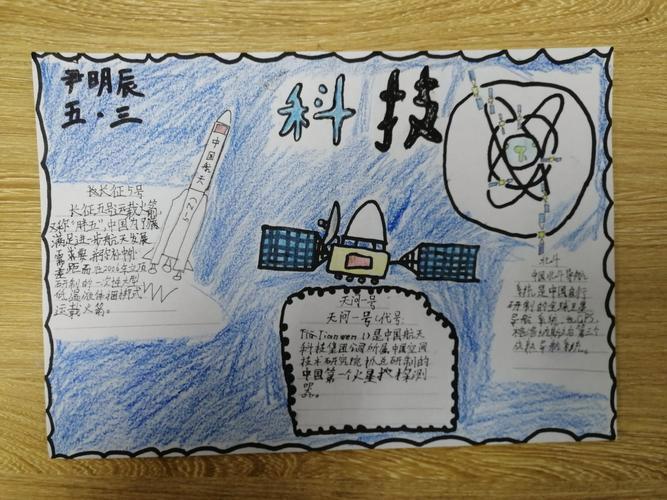 尹明辰
五·三
科技
中国航天
CZ-5
长征5号
长征五号运载火箭,
又称"胖五",中国为了满
满足进一步航天发展
需求要,
距而在2006年立项
研制的一次性大型
低温液体捆绑式
运载火箭。
天问一号
天问一号(代号:
Tianwen 1)是中国航天
科技集团公司所属中国空间
技术研究院 研制的
中国第一个火星 探测
器。
北斗
中国北斗导航
系统是中国自行
研制的全球卫星
导航系统,也GPS、
格洛纳斯之后第三个
导航系统。